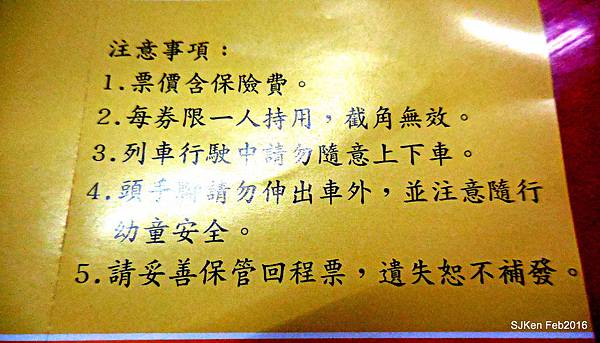 注意事項：
1.票價含保險費。
2.每券限一人持用，截角無效。
3.列車行駛中請勿隨意上下車。
4.頭手腳請勿伸出車外，並注意隨行
幼童安全。
5.請妥善保管回程票，遺失恕不補發。
SJKen Feb2016